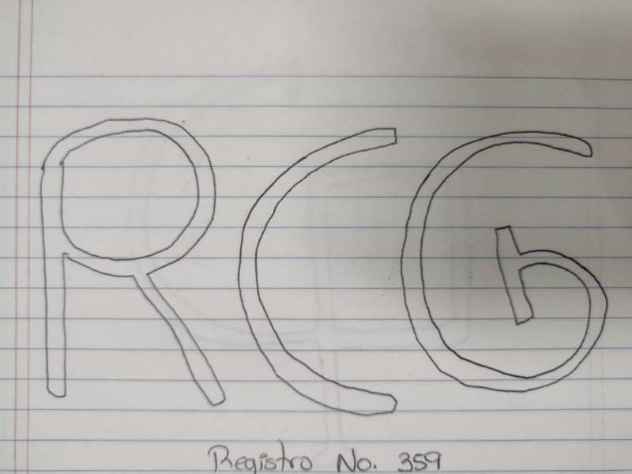 RCG
Registro No. 359